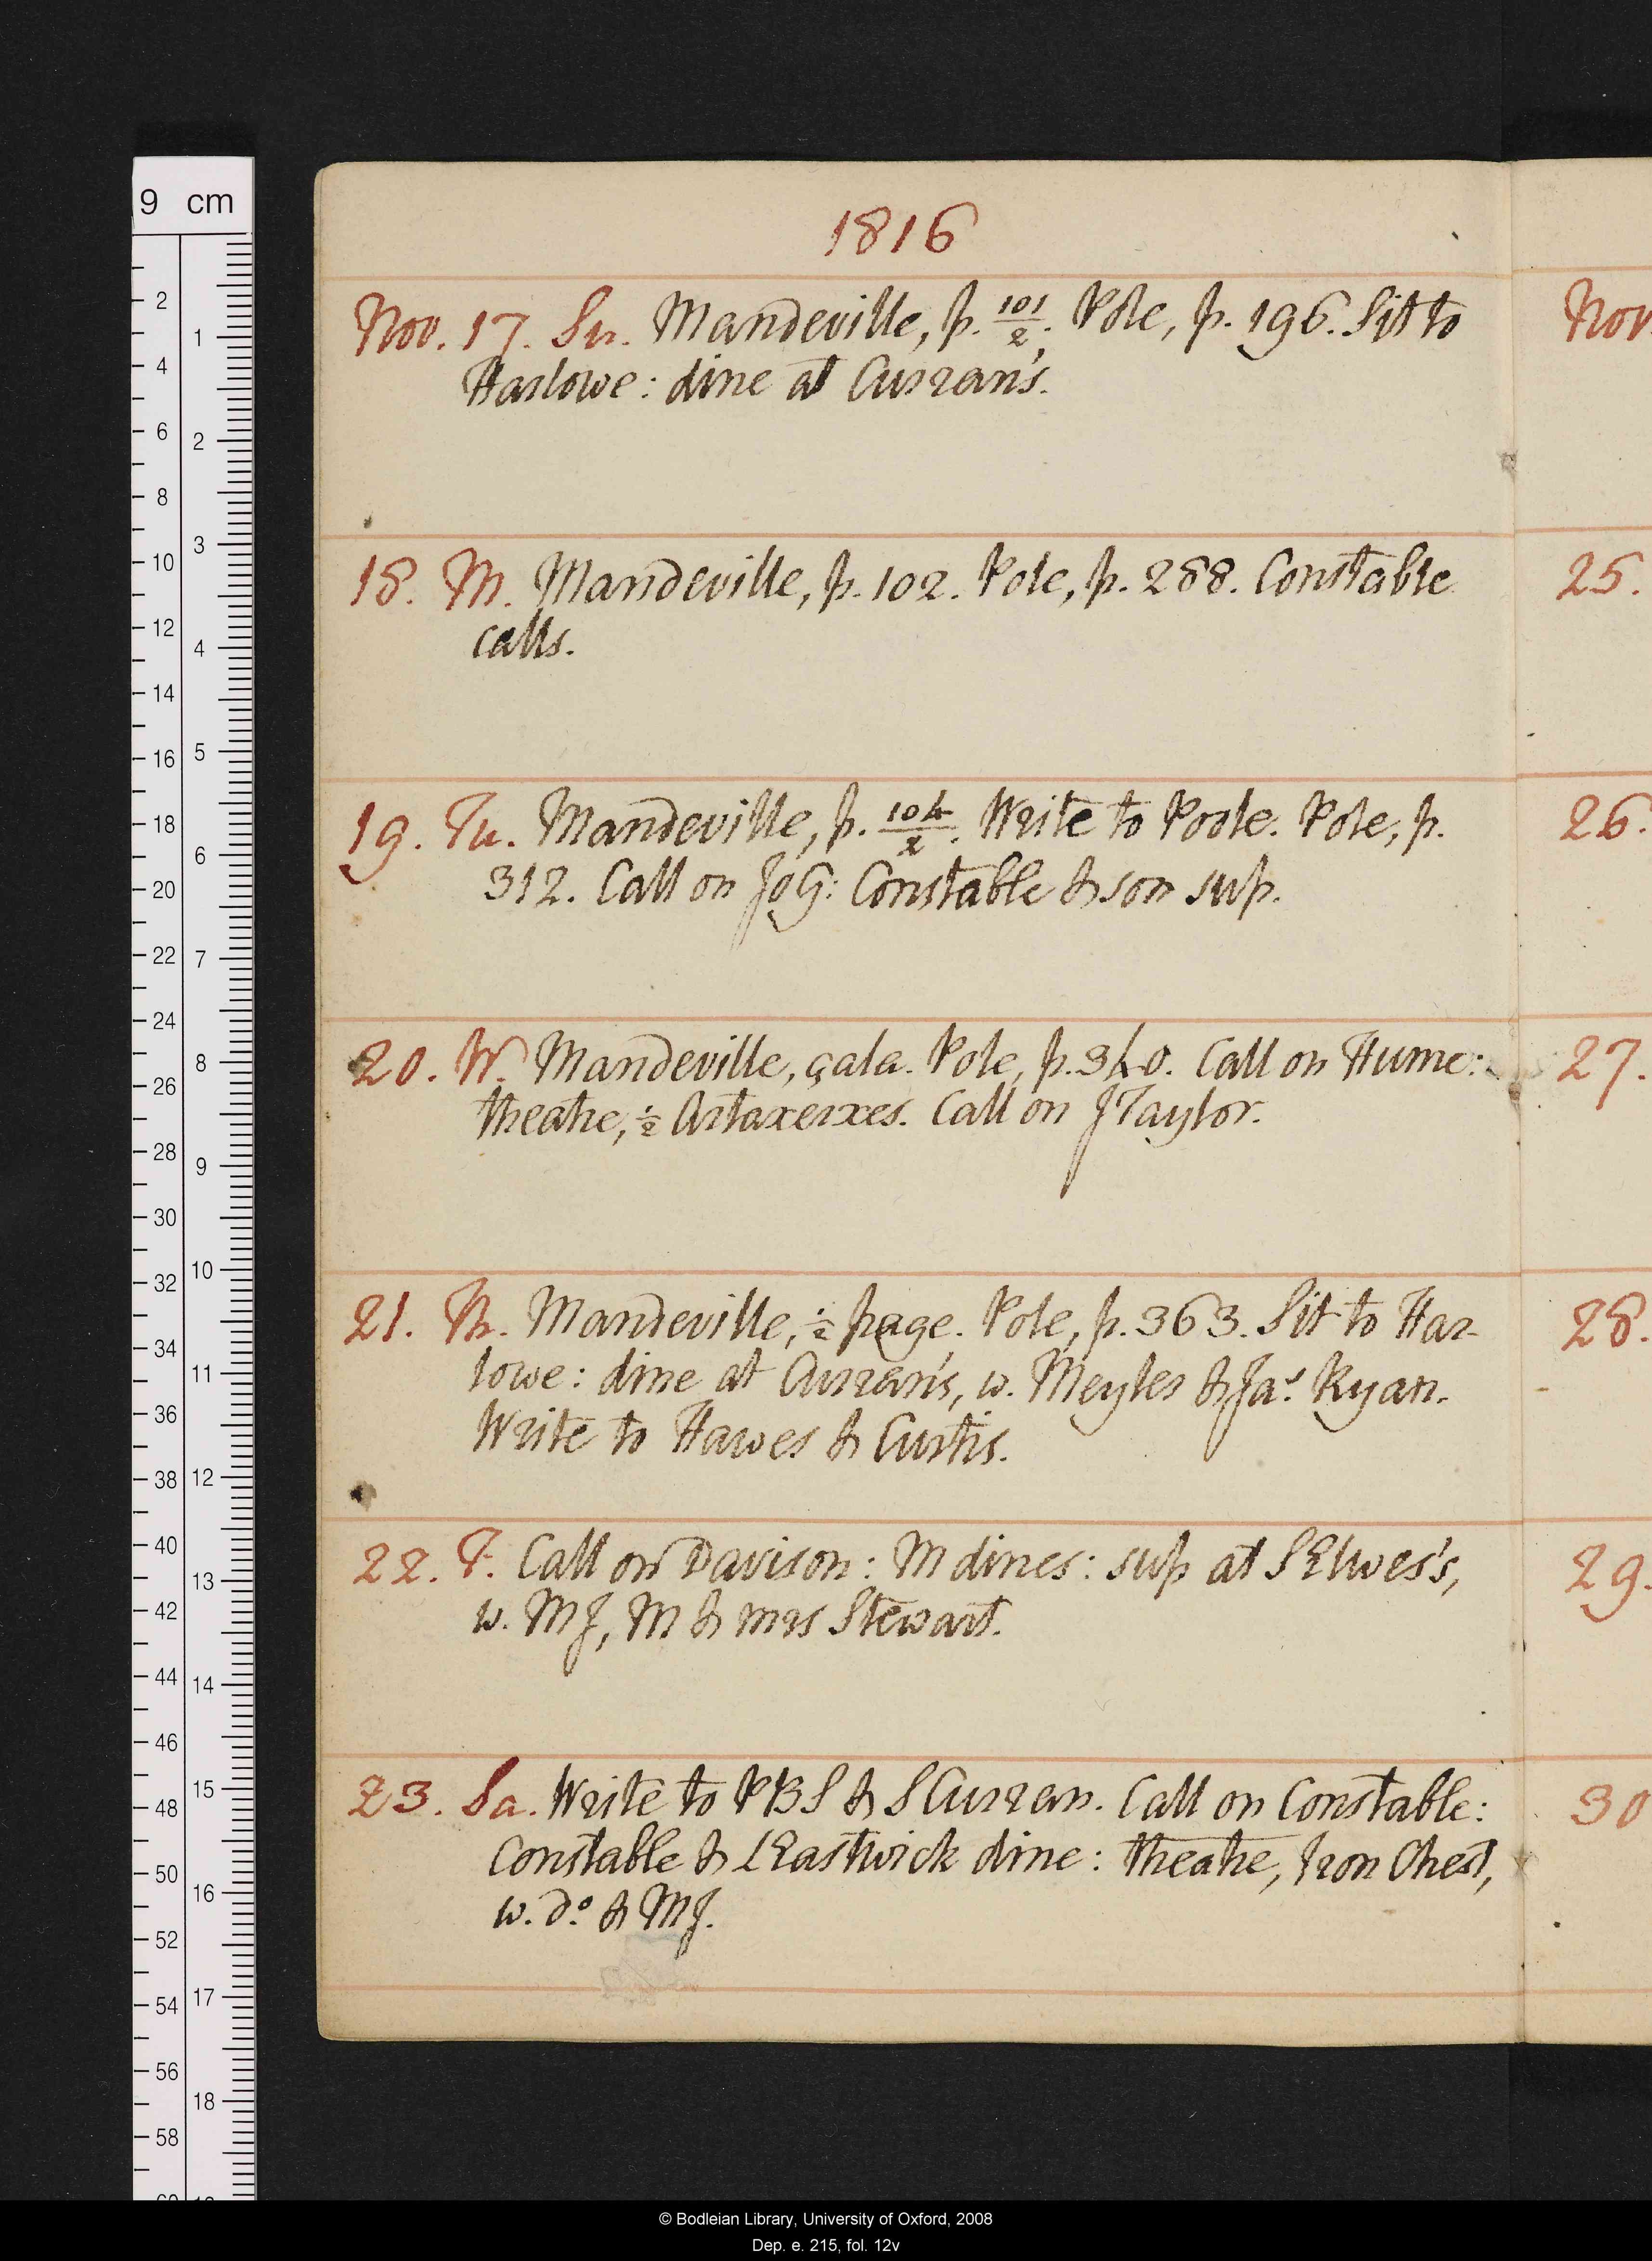 1816
Nov. 17. Su. Mandeville, p. 101/2. Pole, p. 196. Sit to
Harlowe: dine at Curran's.
18. M. Mandeville, p. 102. Pole, p. 288. Constable
calls.
19. Tu. Mandeville, p. 104/2. Write to Poole. Pole, p.
312. Call on JoG: Constable & son sup.
20. W. Mandeville, çala. Pole, p. 340. Call on Hume:
theatre, ½ Artaxerxes. Call on JTaylor.
21. Th. Mandeville, ½ page. Pole, p. 363. Sit to Har-
lowe: dine at Curran's, w. Meyler & Jas Ryan.
Write to Hawes & Curtis.
22. F. Call on Davison: M dines: sup at SElwes's,
w. MJ, M & mrs Stewart.
23. Sa. Write to PBS & SCurran. Call on Constable:
Constable & LEastwick dine: theatre, Iron Chest,
w. do. & MJ.
Nov
25.
26.
27.
28.
29.
30
9 cm
2
4
6
8
10
12
14
16
18
20
22
24
26
28
30
32
34
36
38
40
42
44
46
48
50
52
54
56
58
1
2
3
4
5
6
7
8
9
10
11
12
13
14
15
16
17
18
© Bodleian Library, University of Oxford, 2008
Dep. e. 215, fol. 12v